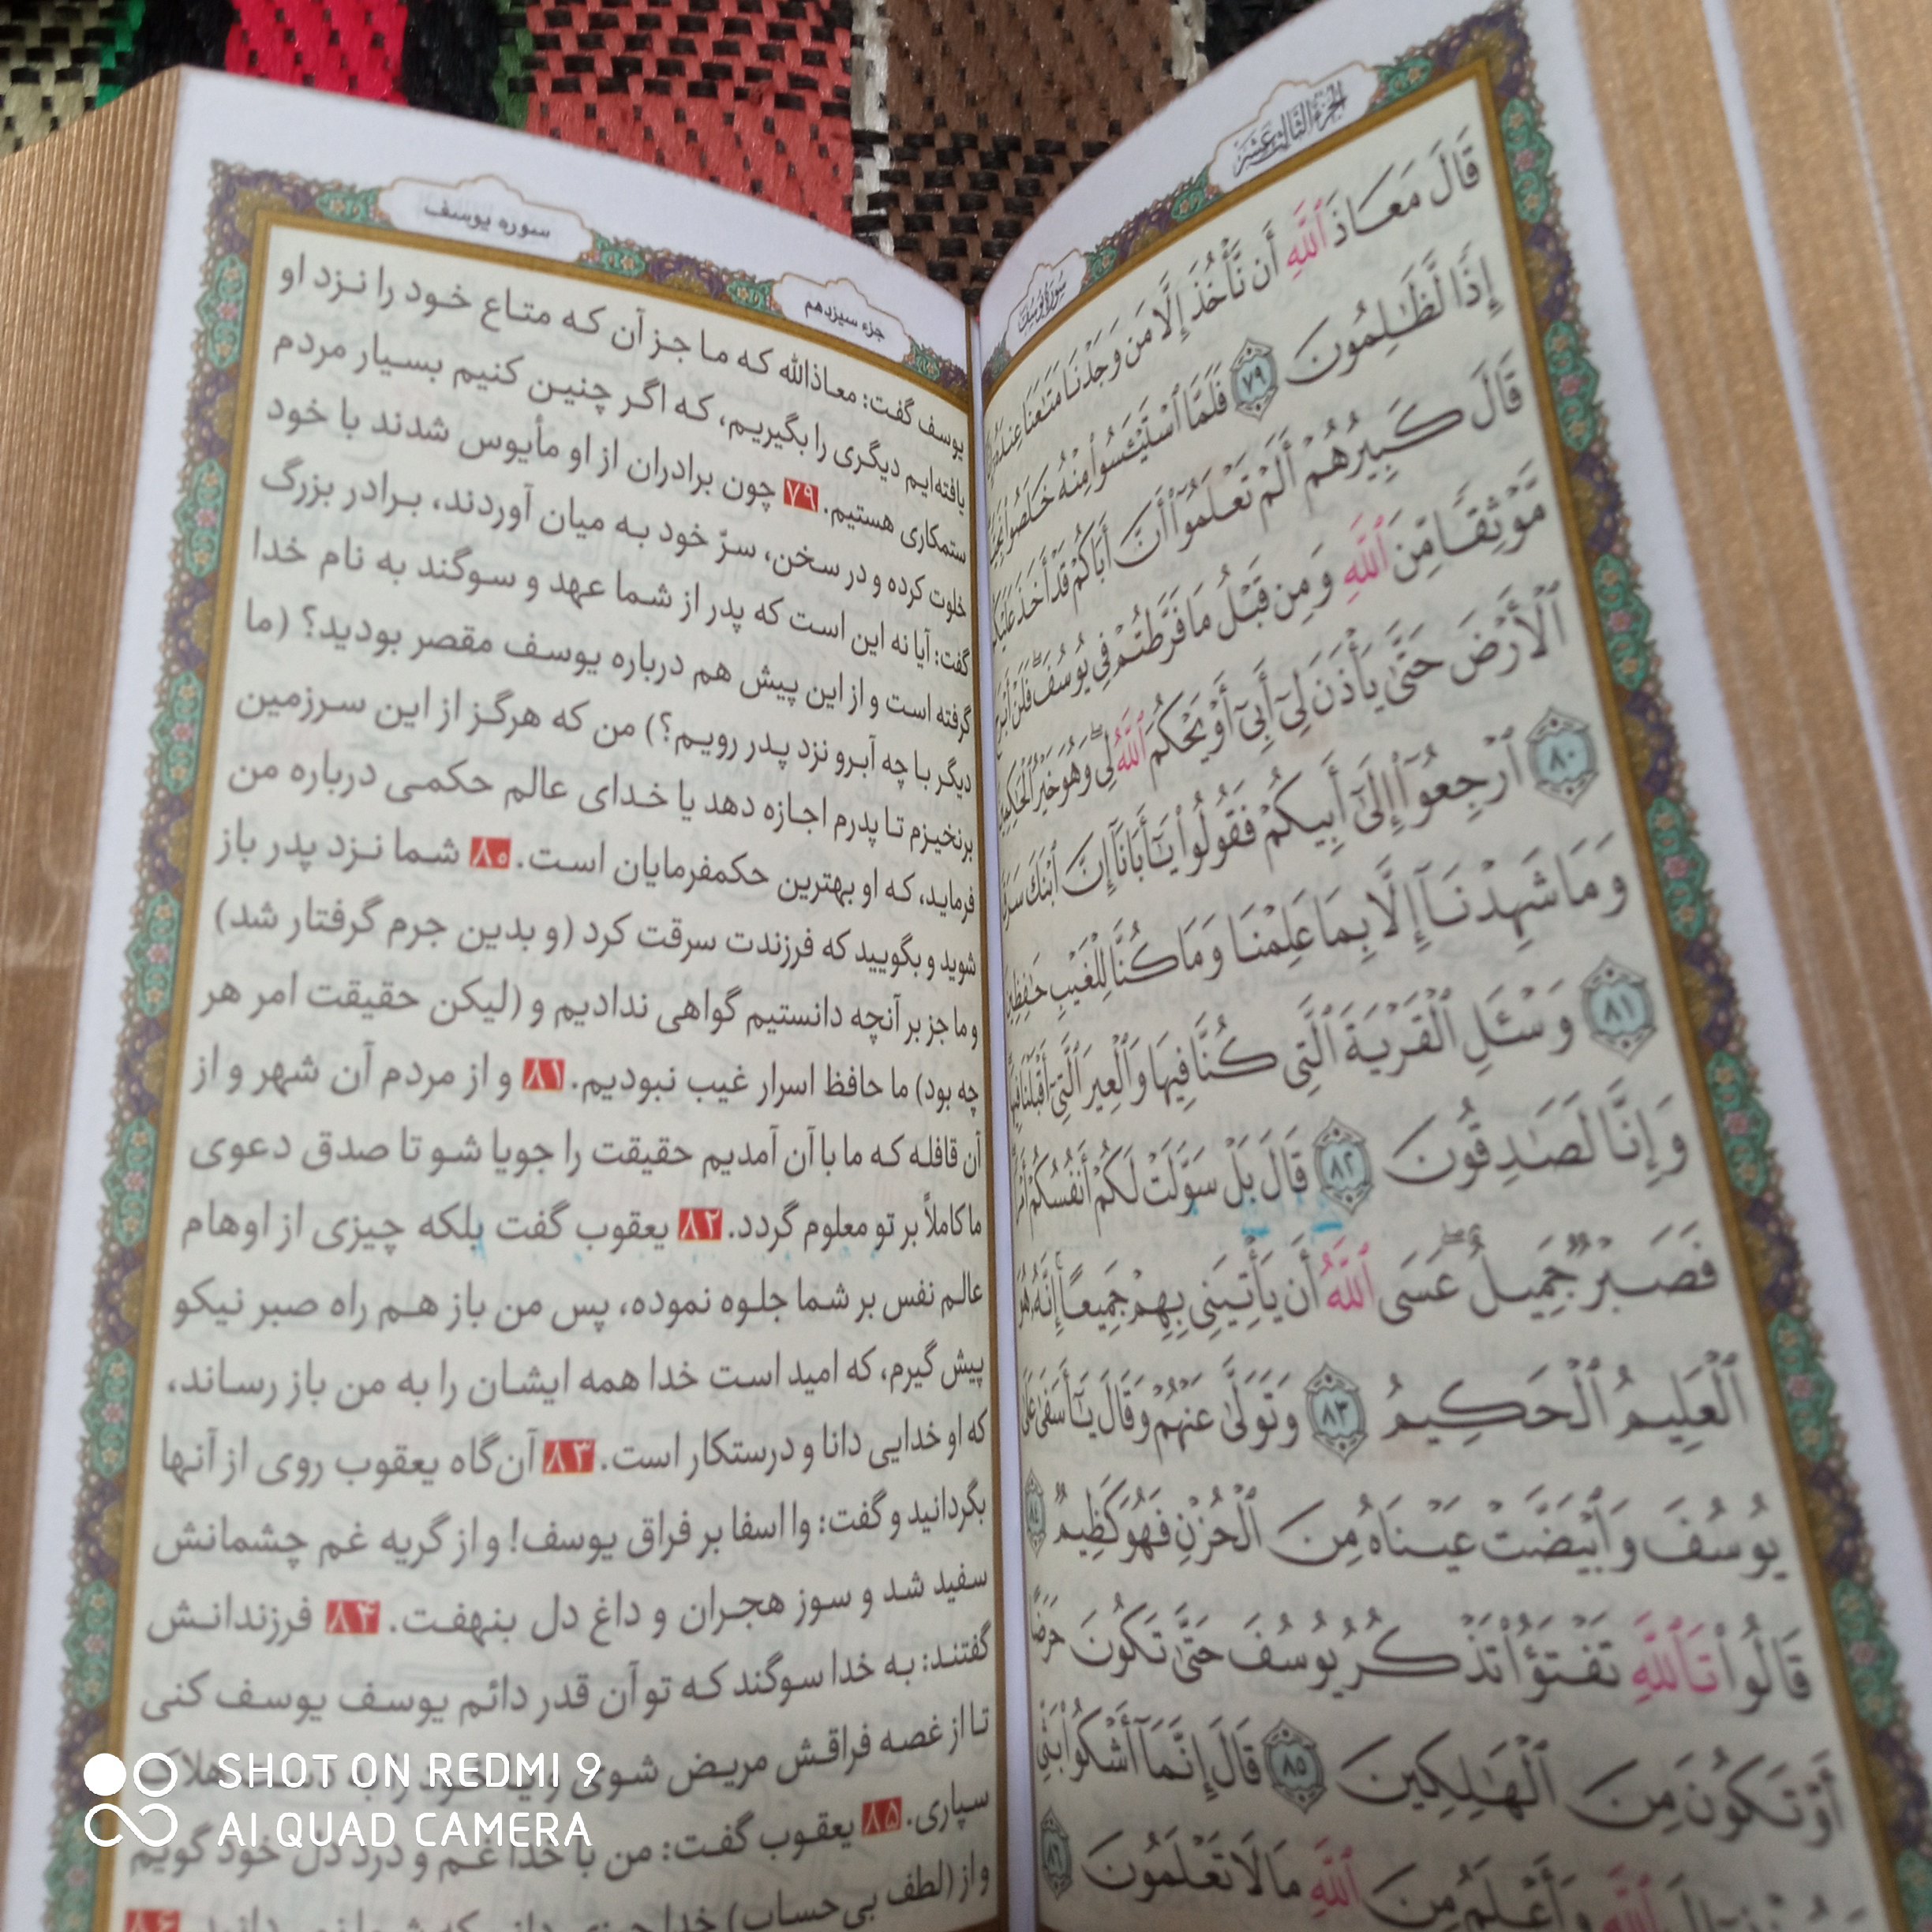 الجزء الثالث عشر
سورة يوسف
قَالَ مَعَاذَ ٱللَّهِ أَن نَّأْخُذَ إِلَّا مَن وَجَدْنَا مَتَٰعَنَا عِندَهُۥٓ
إِذًا لَّظَٰلِمُونَ ٧٩ فَلَمَّا ٱسْتَيْـَٔسُوا۟ مِنْهُ خَلَصُوا۟
قَالَ كَبِيرُهُمْ أَلَمْ تَعْلَمُوٓا۟ أَنَّ أَبَاكُمْ قَدْ أَخَذَ عَلَيْكُم
مَّوْثِقًا مِّنَ ٱللَّهِ وَمِن قَبْلُ مَا فَرَّطتُمْ فِى يُوسُفَ ۖ فَلَنْ أَبْرَحَ
ٱلْأَرْضَ حَتَّىٰ يَأْذَنَ لِىٓ أَبِىٓ أَوْ يَحْكُمَ ٱللَّهُ لِى ۖ وَهُوَ خَيْرُ ٱلْحَٰكِمِينَ
٨٠ ٱرْجِعُوٓا۟ إِلَىٰٓ أَبِيكُمْ فَقُولُوا۟ يَٰٓأَبَانَآ إِنَّ ٱبْنَكَ سَرَقَ
وَمَا شَهِدْنَآ إِلَّا بِمَا عَلِمْنَا وَمَا كُنَّا لِلْغَيْبِ حَٰفِظِينَ
٨١ وَسْـَٔلِ ٱلْقَرْيَةَ ٱلَّتِى كُنَّا فِيهَا وَٱلْعِيرَ ٱلَّتِىٓ أَقْبَلْنَا فِيهَا
وَإِنَّا لَصَٰدِقُونَ ٨٢ قَالَ بَلْ سَوَّلَتْ لَكُمْ أَنفُسُكُمْ
فَصَبْرٌ جَمِيلٌ ۖ عَسَى ٱللَّهُ أَن يَأْتِيَنِى بِهِمْ جَمِيعًا ۚ إِنَّهُۥ هُوَ
ٱلْعَلِيمُ ٱلْحَكِيمُ ٨٣ وَتَوَلَّىٰ عَنْهُمْ وَقَالَ يَٰٓأَسَفَىٰ عَلَىٰ
يُوسُفَ وَٱبْيَضَّتْ عَيْنَاهُ مِنَ ٱلْحُزْنِ فَهُوَ كَظِيمٌ ٨٤
قَالُوا۟ تَٱللَّهِ تَفْتَؤُا۟ تَذْكُرُ يُوسُفَ حَتَّىٰ تَكُونَ حَرَضًا
أَوْ تَكُونَ مِنَ ٱلْهَٰلِكِينَ ٨٥ قَالَ إِنَّمَآ أَشْكُوا۟ بَثِّى
ٱللَّهِ وَأَعْلَمُ مِنَ ٱللَّهِ مَا لَا تَعْلَمُونَ ٨٦
سوره یوسف
جزء سیزدهم
یوسف گفت: معاذالله که ما جز آن که متاع خود را نزد او
یافته‌ایم دیگری را بگیریم، که اگر چنین کنیم بسیار مردم
ستمکاری هستیم. ۷۹ چون برادران از او مأیوس شدند با خود
خلوت کرده و در سخن، سرّ خود به میان آوردند، برادر بزرگ
گفت: آیا نه این است که پدر از شما عهد و سوگند به نام خدا
گرفته است و از این پیش هم درباره یوسف مقصر بودید؟ (ما
دیگر با چه آبرو نزد پدر رویم؟) من که هرگز از این سرزمین
برنخیزم تا پدرم اجازه دهد یا خدای عالم حکمی درباره من
فرماید، که او بهترین حکمفرمایان است. ۸۰ شما نزد پدر باز
شوید و بگویید که فرزندت سرقت کرد (و بدین جرم گرفتار شد)
و ما جز بر آنچه دانستیم گواهی ندادیم و (لیکن حقیقت امر هر
چه بود) ما حافظ اسرار غیب نبودیم. ۸۱ و از مردم آن شهر و از
آن قافله که ما با آن آمدیم حقیقت را جویا شو تا صدق دعوی
ما کاملاً بر تو معلوم گردد. ۸۲ یعقوب گفت بلکه چیزی از اوهام
عالم نفس بر شما جلوه نموده، پس من باز هم راه صبر نیکو
پیش گیرم، که امید است خدا همه ایشان را به من باز رساند،
که او خدایی دانا و درستکار است. ۸۳ آن‌گاه یعقوب روی از آنها
بگردانید و گفت: وا اسفا بر فراق یوسف! و از گریه غم چشمانش
سفید شد و سوز هجران و داغ دل بنهفت. ۸۴ فرزندانش
گفتند: به خدا سوگند که تو آن قدر دائم یوسف یوسف کنی
تا از غصه فراقش مریض شوی
سپاری. ۸۵ یعقوب گفت: من با خدا غم و درد دل خود گویم
و از (لطف بی‌حساب) خدا
SHOT ON REDMI 9
AI QUAD CAMERA